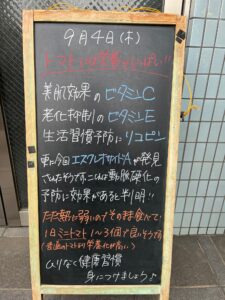 9月4日(木)
トマトでは栄養がいっぱい!!
美肌効果のビタミンC
老化抑制のビタミンE
生活習慣予防にリコピン
更に今回エスクレオサイドAが発見
されたそうです。これは動脈硬化の
予防に効果があると判明!!
ただ熱に弱いのでその為食べて
1日ミニトマト1〜3個で良いそうです
(普通のトマトより栄養化が高い)
ムリなく健康習慣
身につけましょう♪